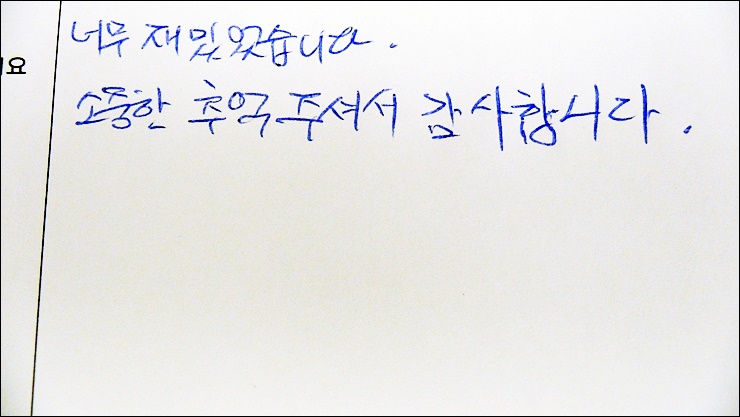 너무 재밌었습니다.
요
소중한 추억 주셔서 감사합니다.